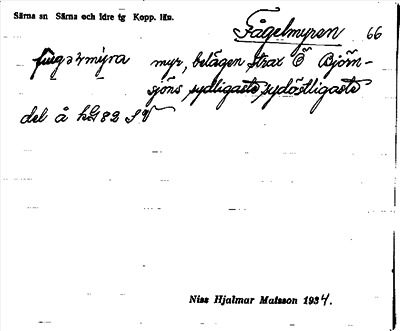 Särna sn Särna och Idre tg Kopp. län.
Fågelmyren 66
myr, belägen strax Ö Björn-
sjöns sydligaste, sydöstligaste
del å hbl 82 SV
Niss Hjalmar Matsson 1934.